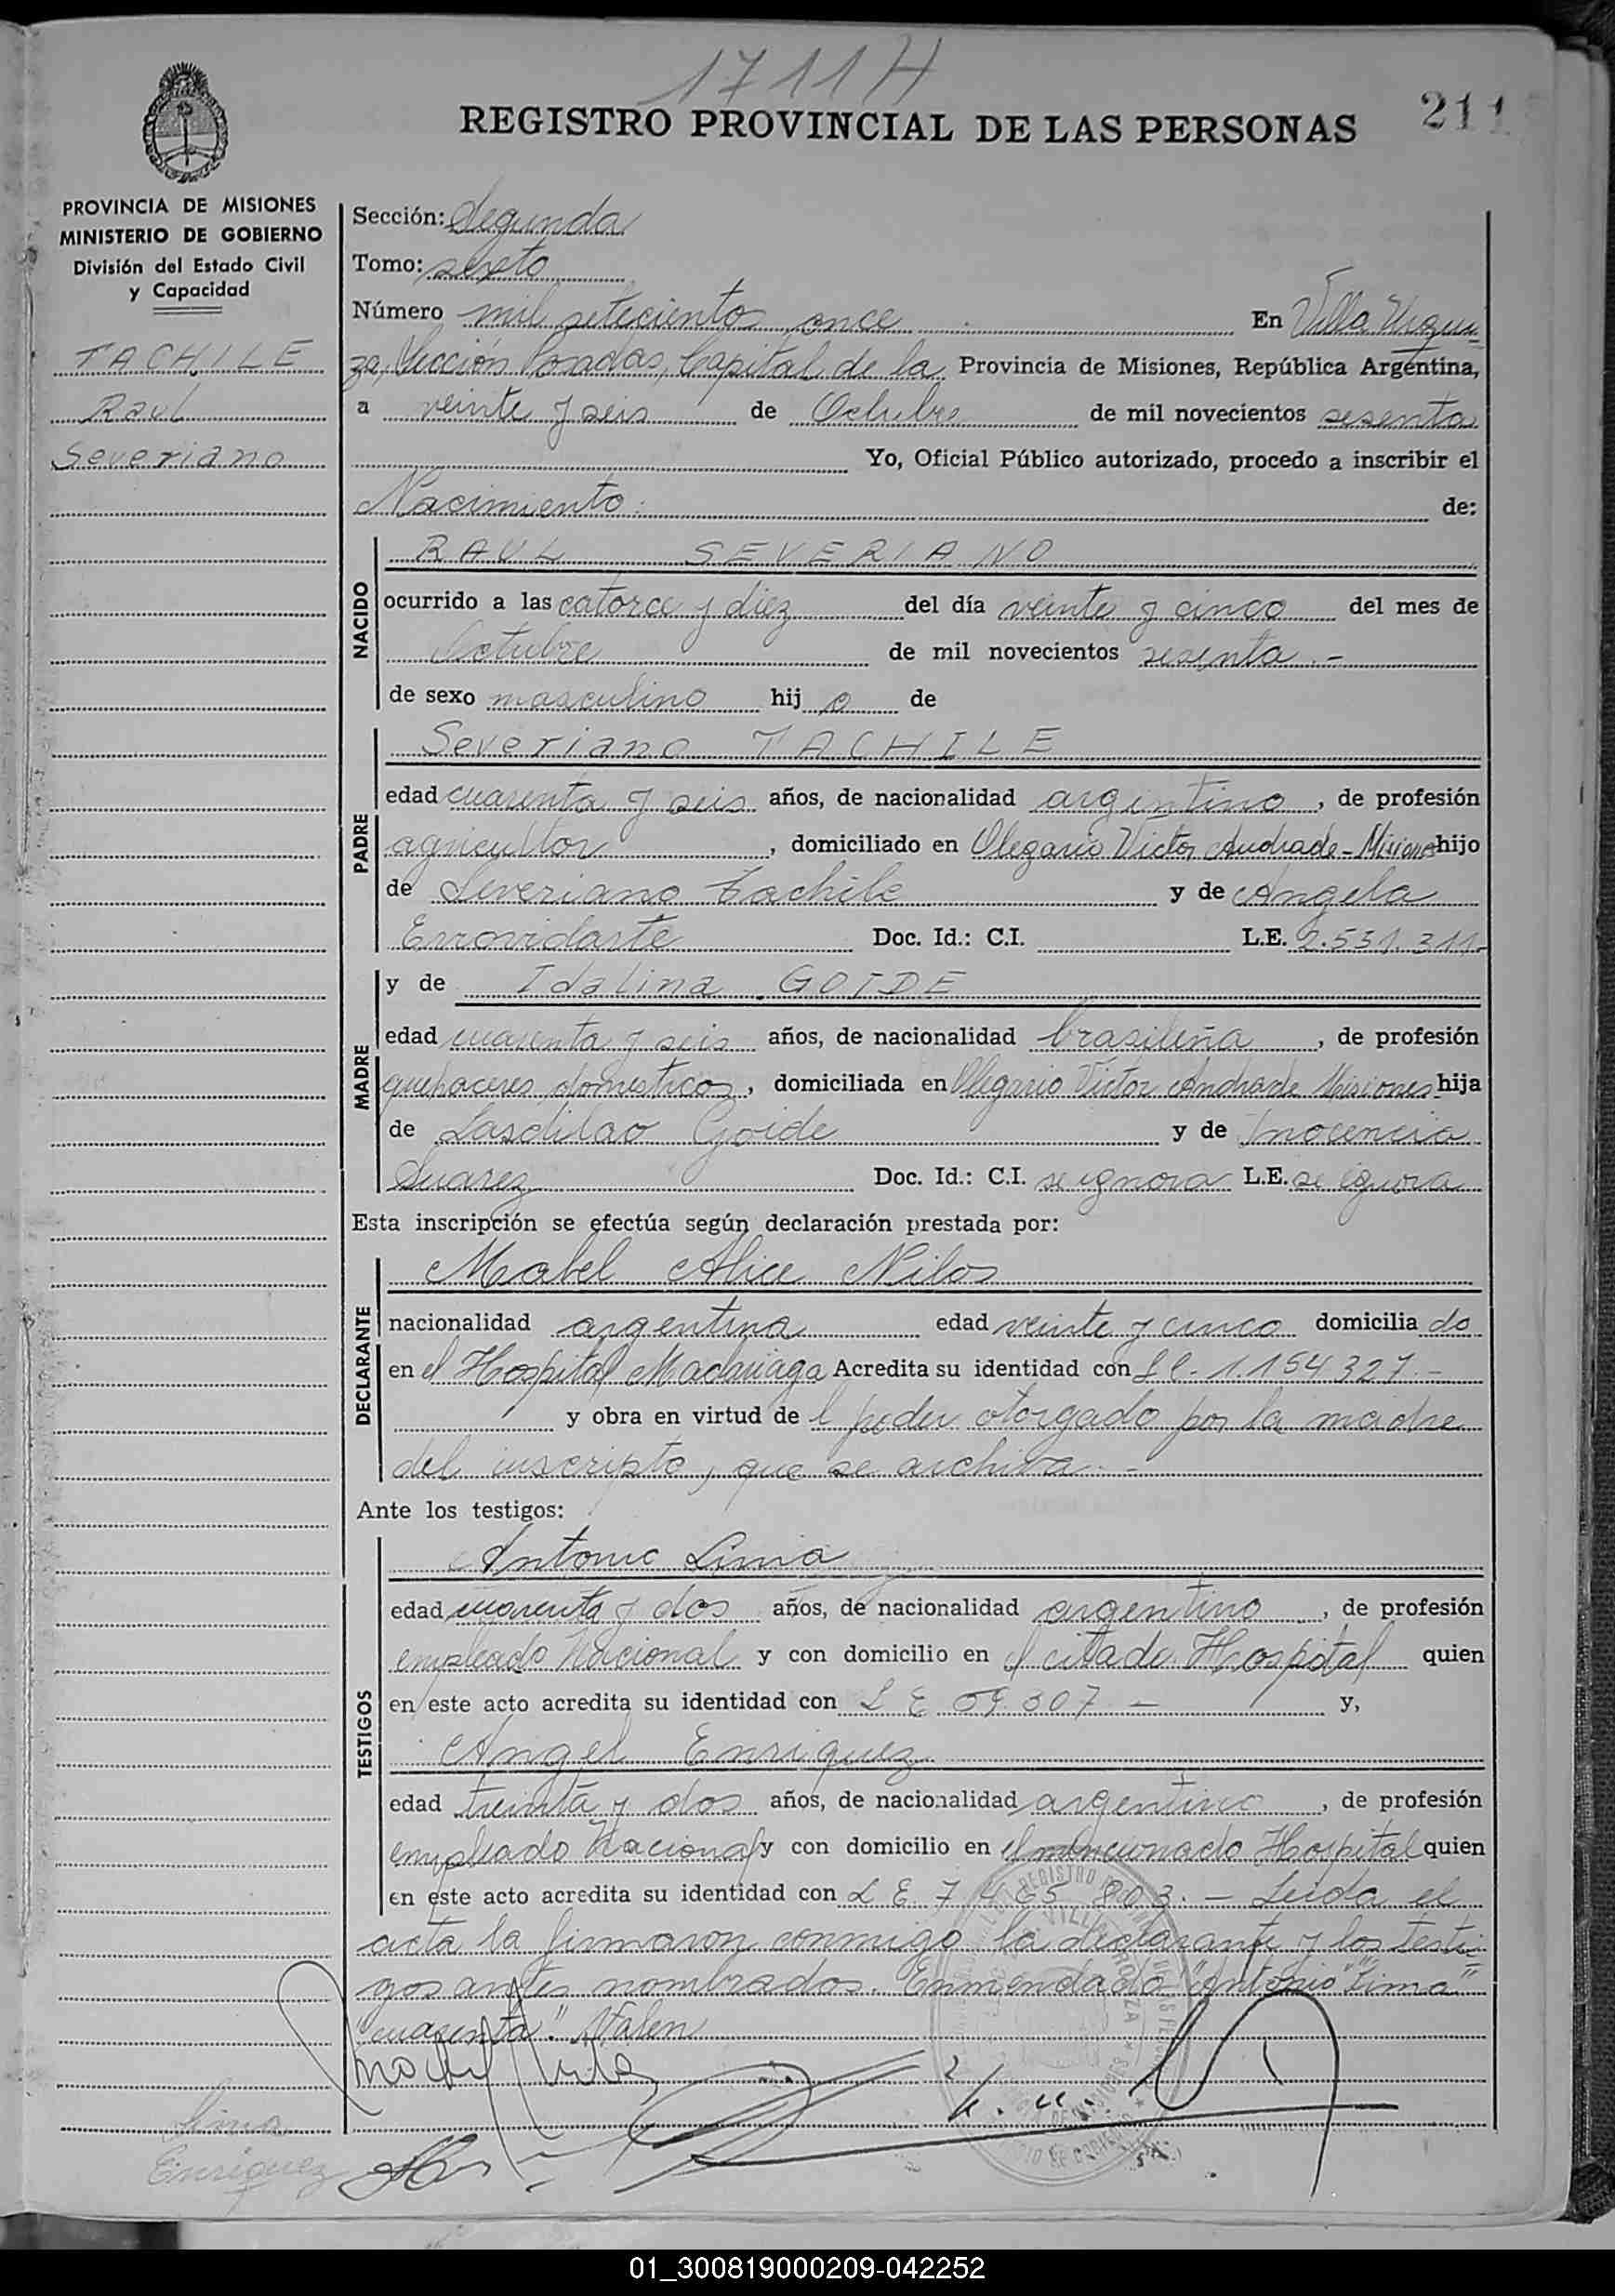 1711H
REGISTRO PROVINCIAL DE LAS PERSONAS 211
PROVINCIA DE MISIONES
MINISTERIO DE GOBIERNO
División del Estado Civil
y Capacidad
TACHILE
Raul
Severiano
Sección: Segunda
Tomo: sexto
Número mil setecientos once En Villa Urqui
za, Sección Posadas, Capital de la Provincia de Misiones, República Argentina,
a veinte y seis de Octubre de mil novecientos sesenta
Yo, Oficial Público autorizado, procedo a inscribir el
Nacimiento: de:
NACIDO
RAUL SEVERIANO
ocurrido a las catorce y diez del día veinte y cinco del mes de
Octubre de mil novecientos sesenta.-
de sexo masculino hijo de
PADRE
Severiano TACHILE
edad cuarenta y seis años, de nacionalidad argentino, de profesión
agricultor, domiciliado en Olegario Victor Andrade-Misiones hijo
de Severiano Tachile y de Angela
Errovidarte Doc. Id.: C.I. L.E. 2.531.311-
MADRE
y de Idalina GOIDE
edad cuarenta y seis años, de nacionalidad brasileña, de profesión
quehaceres domesticos, domiciliada en Olegario Victor Andrade Misiones hija
de Lasdilao Goide y de Inocencia
Suarez Doc. Id.: C.I. se ignora L.E. se ignora
Esta inscripción se efectúa según declaración prestada por:
DECLARANTE
Mabel Alice Nilos
nacionalidad argentina edad veinte y cinco domiciliado
en el Hospital Madariaga Acredita su identidad con LC. 1.154327.-
y obra en virtud del poder otorgado por la madre
del inscripto, que se archiva.-
Ante los testigos:
TESTIGOS
Antonio Lima
edad cuarenta y dos años, de nacionalidad argentino, de profesión
empleado Nacional y con domicilio en el citado Hospital quien
en este acto acredita su identidad con L E 59.307 - y,
Angel Enriquez
edad treinta y dos años, de nacionalidad argentino, de profesión
empleado Nacional y con domicilio en el mencionado Hospital quien
en este acto acredita su identidad con L E 7.465.803.- Leida el
acta la firmaron conmigo la declarante y los testi-
gos antes nombrados. Enmendado "Antonio" "Lima"
"cuarenta". Valen
Lima
Enriquez
01_300819000209-042252